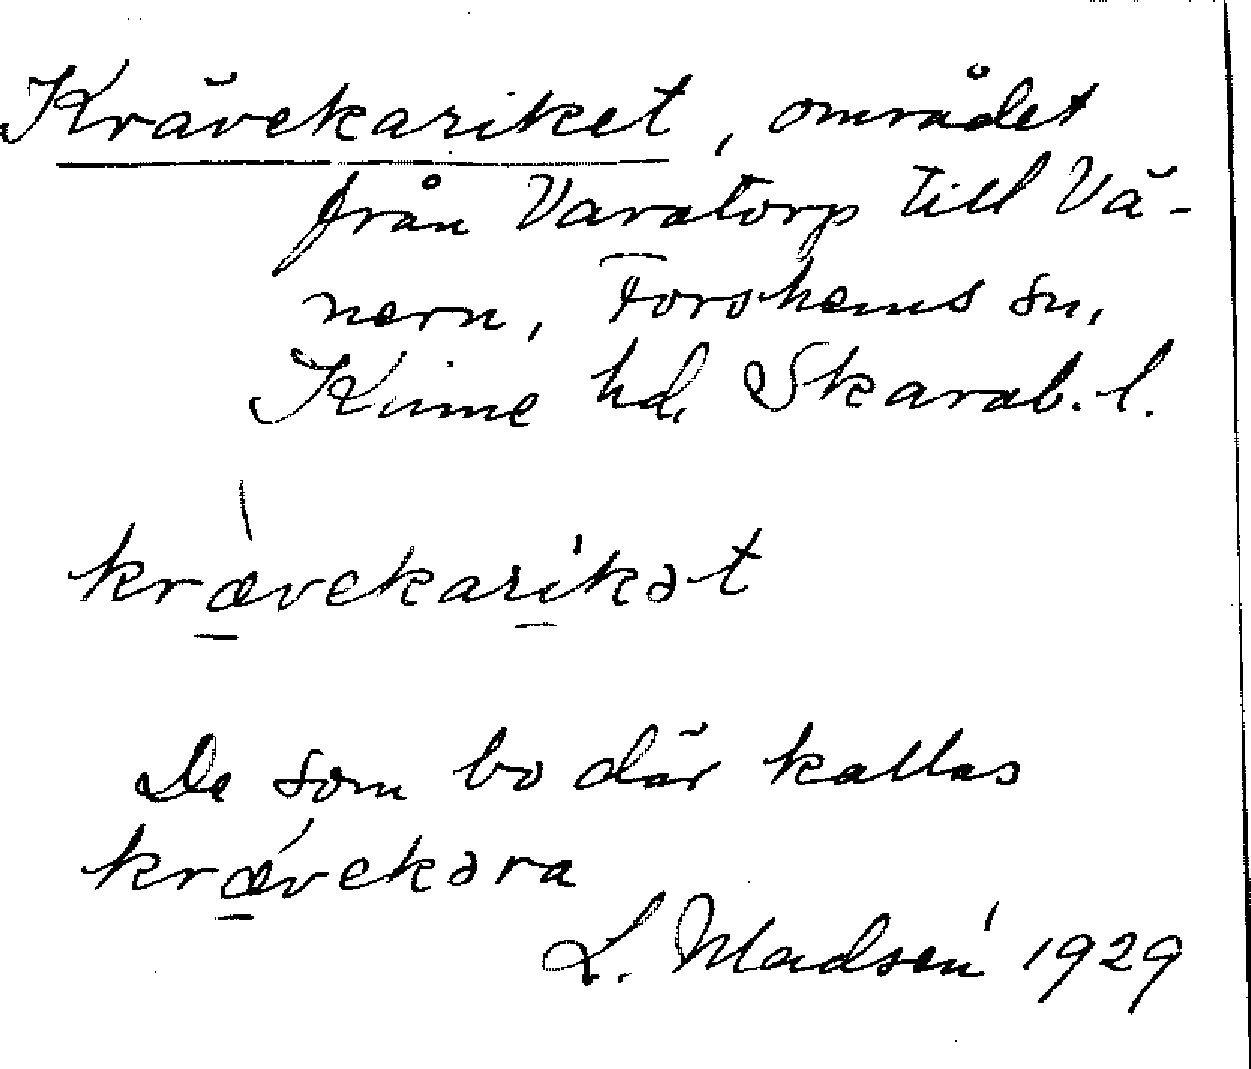 Krävekariket, området
från Varatorp till Vä-
nern, Forshems sn,
Kinne hd, Skarab. l.
krævekarikət
De som bo där kallas
krævekəra
L. Madsén 1929